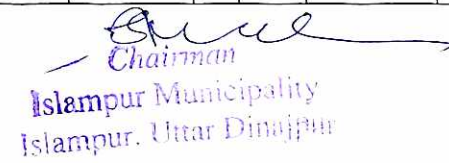 Chairman
Islampur Municipality
Islampur. Uttar Dinajpur